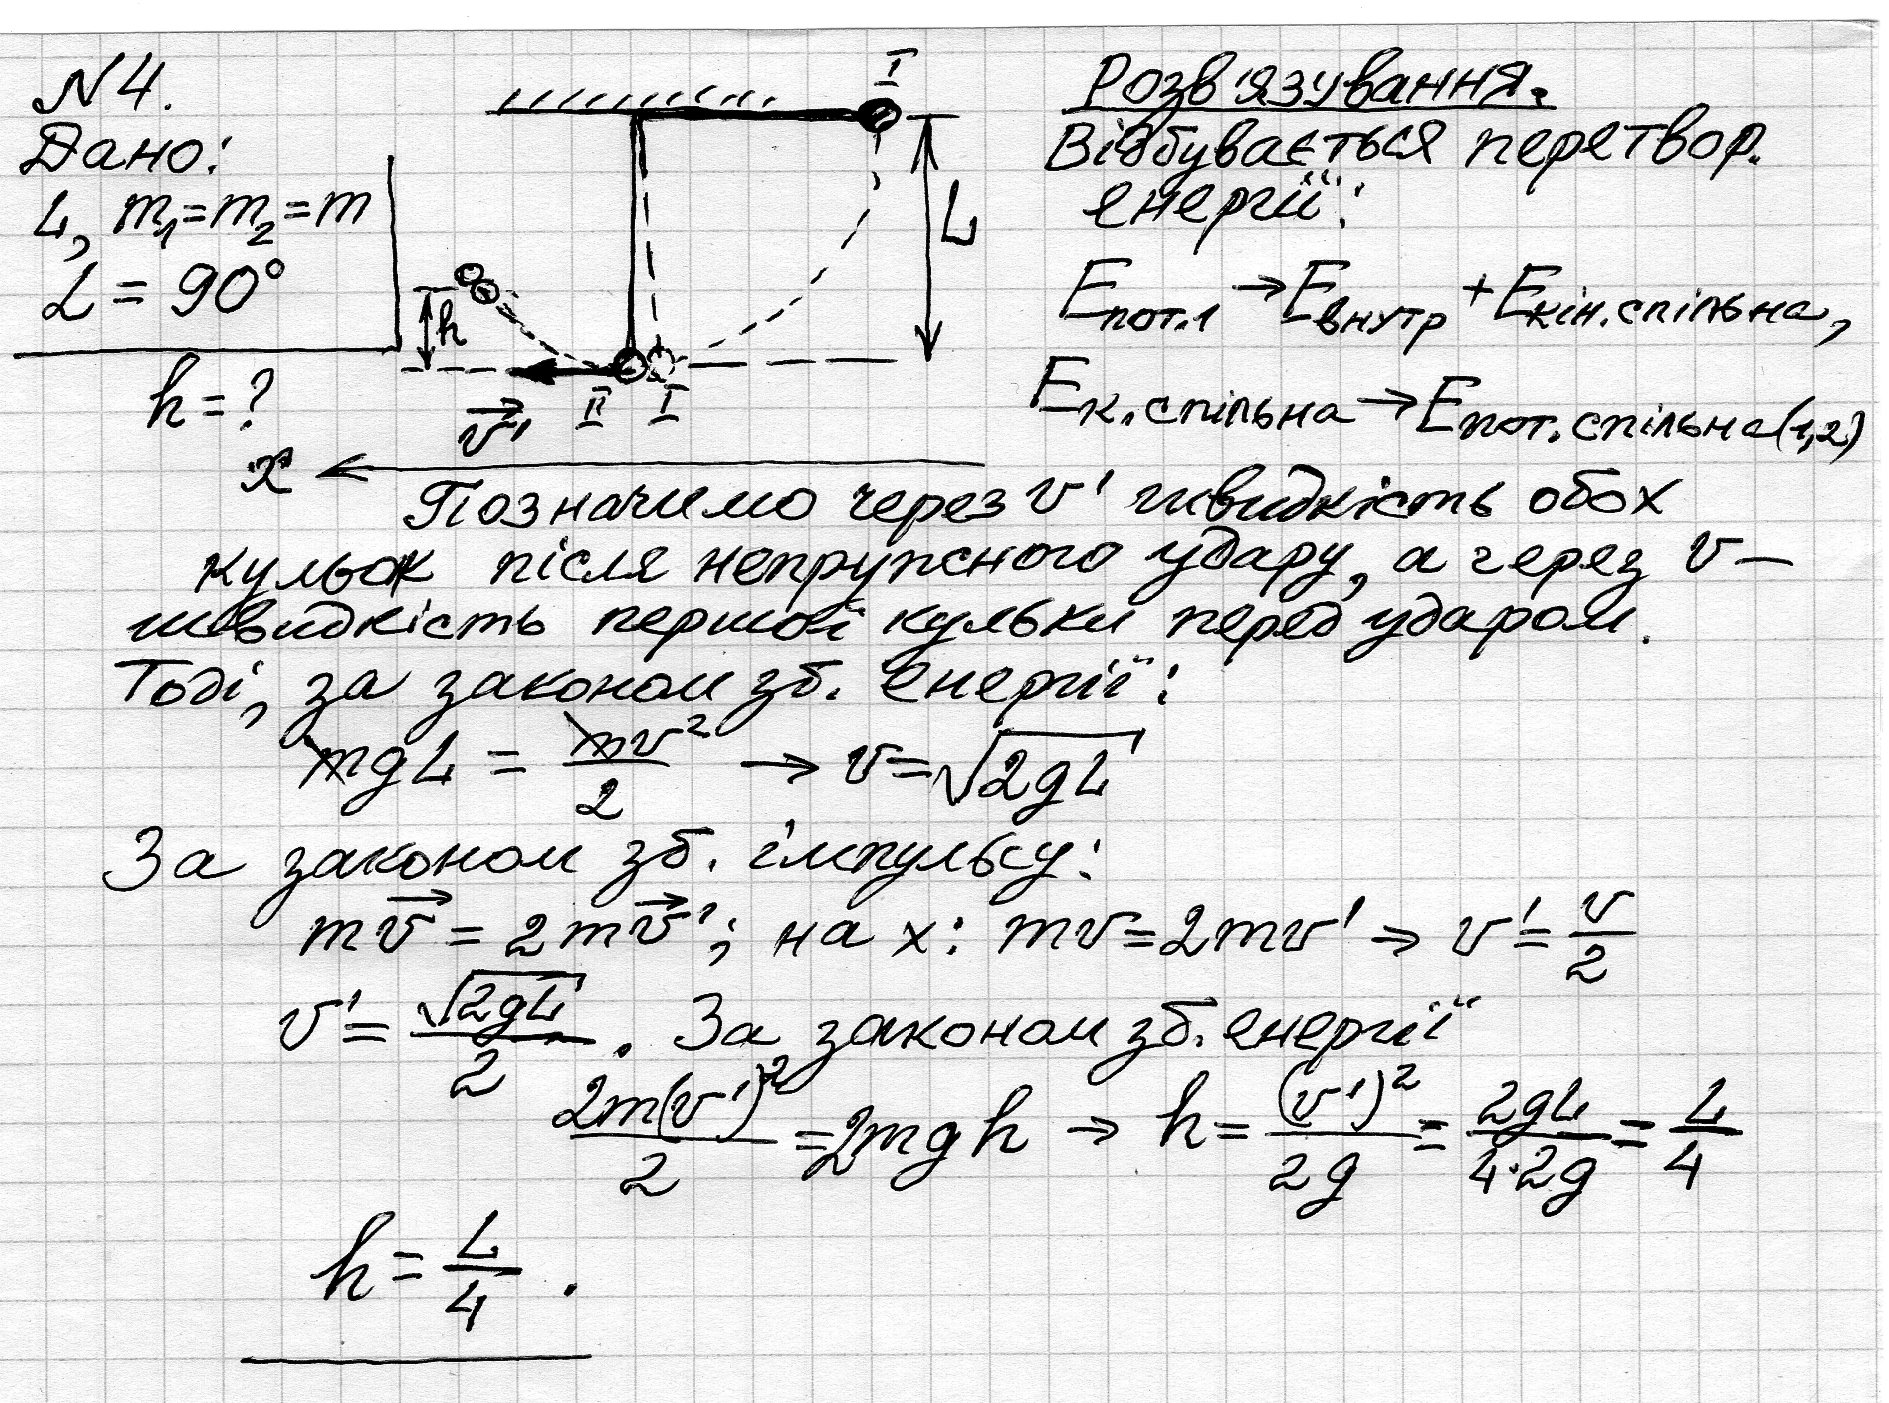 N4.
Дано:
L, m₁=m₂=m
α = 90°
h = ?
I
L
h
v⃗' II I
x
Розв'язування.
Відбувається перетвор.
енергії:
Eпот.1 → Eвнутр + Eкін.спільна,
Eк.спільна → Eпот.спільна(1,2)
Позначимо через v' швидкість обох
кульок після непружного удару, а через v –
швидкість першої кульки перед ударом.
Тоді, за законом зб. енергії:
mgL = mv²/2 → v = √2gL
За законом зб. імпульсу:
mv⃗ = 2mv⃗'; на x: mv = 2mv' → v' = v/2
v' = √2gL/2. За законом зб. енергії
2m(v')²/2 = 2mgh → h = (v')²/2g = 2gL/4·2g = L/4
h = L/4.